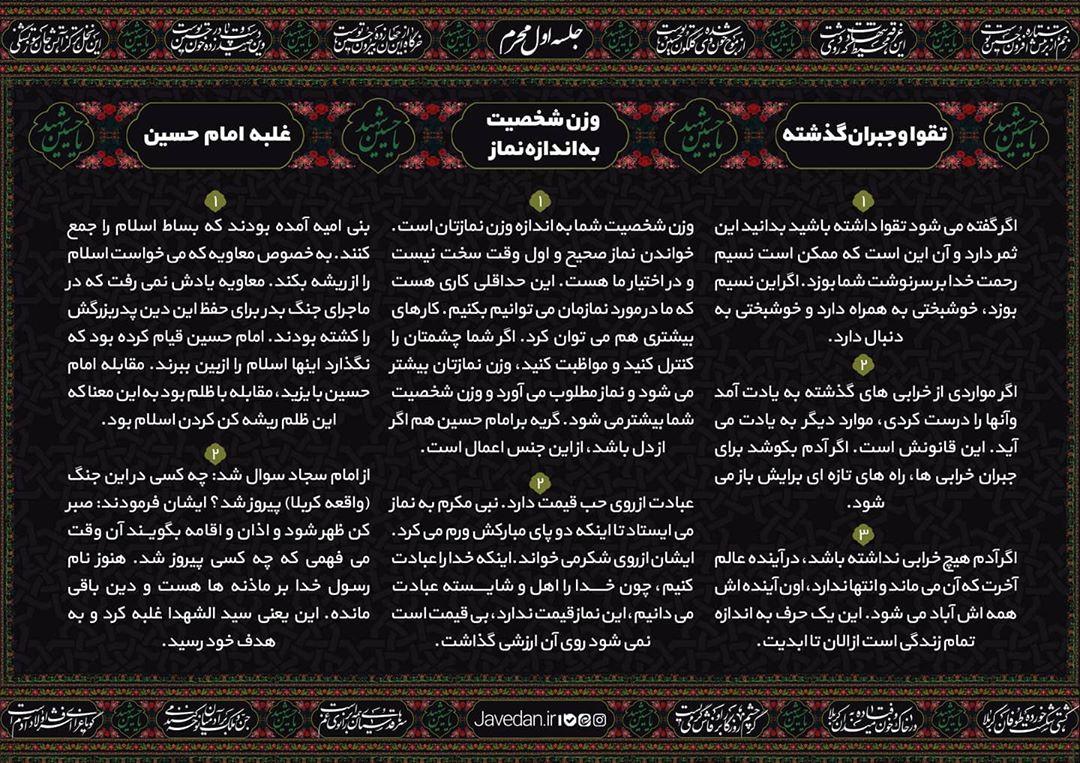 جلسه اول محرم
تقوا و جبران گذشته
۱
اگر گفته می شود تقوا داشته باشید بدانید این
ثمر دارد و آن این است که ممکن است نسیم
رحمت خدا بر سرنوشت شما بوزد. اگر این نسیم
بوزد، خوشبختی به همراه دارد و خوشبختی به
دنبال دارد.
۲
اگر مواردی از خرابی های گذشته به یادت آمد
وآنها را درست کردی، موارد دیگر به یادت می
آید. این قانونش است. اگر آدم بکوشد برای
جبران خرابی ها، راه های تازه ای برایش باز می
شود.
۳
اگر آدم هیچ خرابی نداشته باشد، در آینده عالم
آخرت که آن می ماند و انتها ندارد، اون آینده اش
همه اش آباد می شود. این یک حرف به اندازه
تمام زندگی است از الان تا ابدیت.
وزن شخصیت
به اندازه نماز
۱
وزن شخصیت شما به اندازه وزن نمازتان است.
خواندن نماز صحیح و اول وقت سخت نیست
و در اختیار ما هست. این حداقلی کاری هست
که ما در مورد نمازمان می توانیم بکنیم. کارهای
بیشتری هم می توان کرد. اگر شما چشمتان را
کنترل کنید و مواظبت کنید، وزن نمازتان بیشتر
می شود و نماز مطلوب می آورد و وزن شخصیت
شما بیشتر می شود. گریه بر امام حسین هم اگر
از دل باشد، از این جنس اعمال است.
۲
عبادت از روی حب قیمت دارد. نبی مکرم به نماز
می ایستاد تا اینکه دو پای مبارکش ورم می کرد.
ایشان از روی شکر می خواند. اینکه خدا را عبادت
کنیم، چون خدا را اهل و شایسته عبادت
می دانیم، این نماز قیمت ندارد، بی قیمت است
نمی شود روی آن ارزشی گذاشت.
غلبه امام حسین
۱
بنی امیه آمده بودند که بساط اسلام را جمع
کنند. به خصوص معاویه که می خواست اسلام
را از ریشه بکند. معاویه یادش نمی رفت که در
ماجرای جنگ بدر برای حفظ این دین پدربزرگش
را کشته بودند. امام حسین قیام کرده بود که
نگذارد اینها اسلام را ازبین ببرند. مقابله امام
حسین با یزید، مقابله با ظلم بود به این معنا که
این ظلم ریشه کن کردن اسلام بود.
۲
از امام سجاد سوال شد: چه کسی در این جنگ
(واقعه کربلا) پیروز شد؟ ایشان فرمودند: صبر
کن ظهر شود و اذان و اقامه بگویند آن وقت
می فهمی که چه کسی پیروز شد. هنوز نام
رسول خدا بر ماذنه ها هست و دین باقی
مانده. این یعنی سید الشهدا غلبه کرد و به
هدف خود رسید.
Javedan.ir